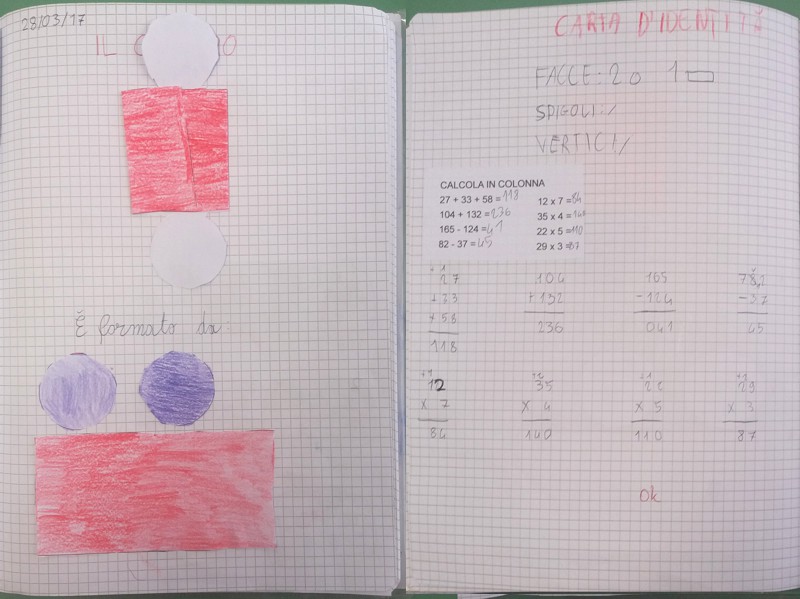 28/03/17
IL C O
È formato da:
CARTA D'IDENTITÀ
FACCE: 2 1
SPIGOLI: /
VERTICI /
CALCOLA IN COLONNA
27 + 33 + 58 = 118
104 + 132 = 236
165 - 124 = 41
82 - 37 = 45
12 x 7 = 84
35 x 4 = 140
22 x 5 = 110
29 x 3 = 87
+1
27
+33
+58
118
104
+132
236
165
-124
041
-37
45
+1
12
x 7
84
+2
35
x 4
140
+1
22
x 5
110
+2
29
x 3
87
Ok